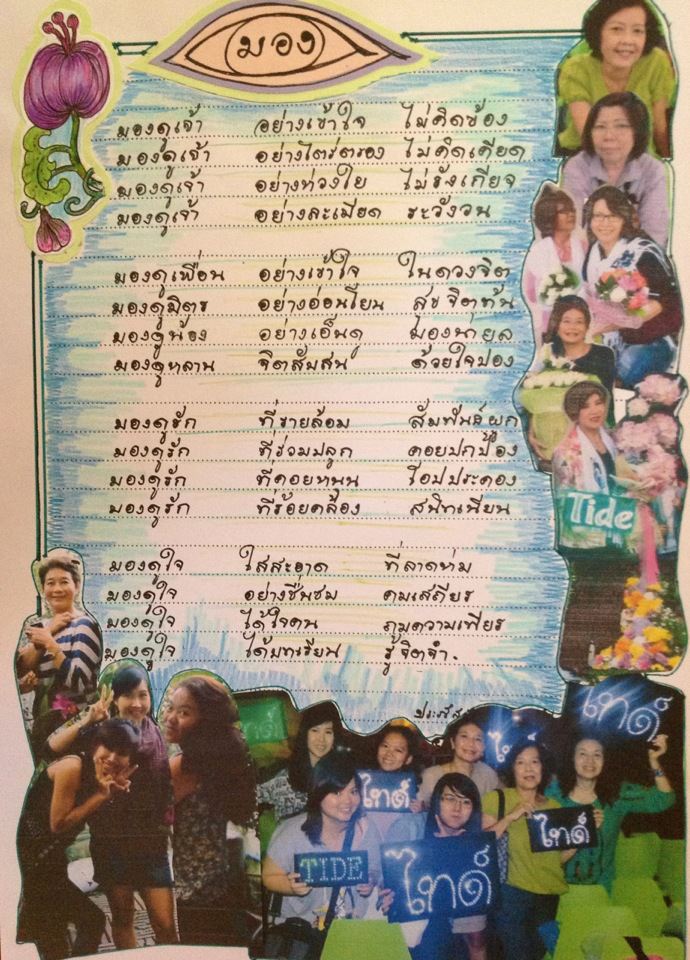 มอง
มองดูเจ้า อย่างเข้าใจ ไม่คิดข้อง
มองดูเจ้า อย่างไตร่ตรอง ไม่คิดเคียด
มองดูเจ้า อย่างห่วงใย ไม่รังเกียจ
มองดูเจ้า อย่างละเมียด ระวังวน
มองดูเพื่อน อย่างเข้าใจ ในดวงจิต
มองดูมิตร อย่างอ่อนโยน สุขจิตท้น
มองดูน้อง อย่างเอ็นดู มองน่ายล
มองดูหลาน จิตสับสน ด้วยใจปอง
มองดูรัก ที่รายล้อม สัมพันธ์ผูก
มองดูรัก ที่ร่วมปลูก คอยปกป้อง
มองดูรัก ที่คอยหนุน โอบประคอง
มองดูรัก ที่ร้อยคล้อง สนิทเนียน
มองดูใจ ใสสะอาด ที่ลาดห่ม
มองดูใจ อย่างชื่นชม คมเสถียร
มองดูใจ ได้ใจคน ความเพียร
มองดูใจ ได้บทเรียน รู้จิตจำ.
Tide
ไทด์
ไทด์
ไทด์
ไทด์
ไทด์
TIDE
ไทด์